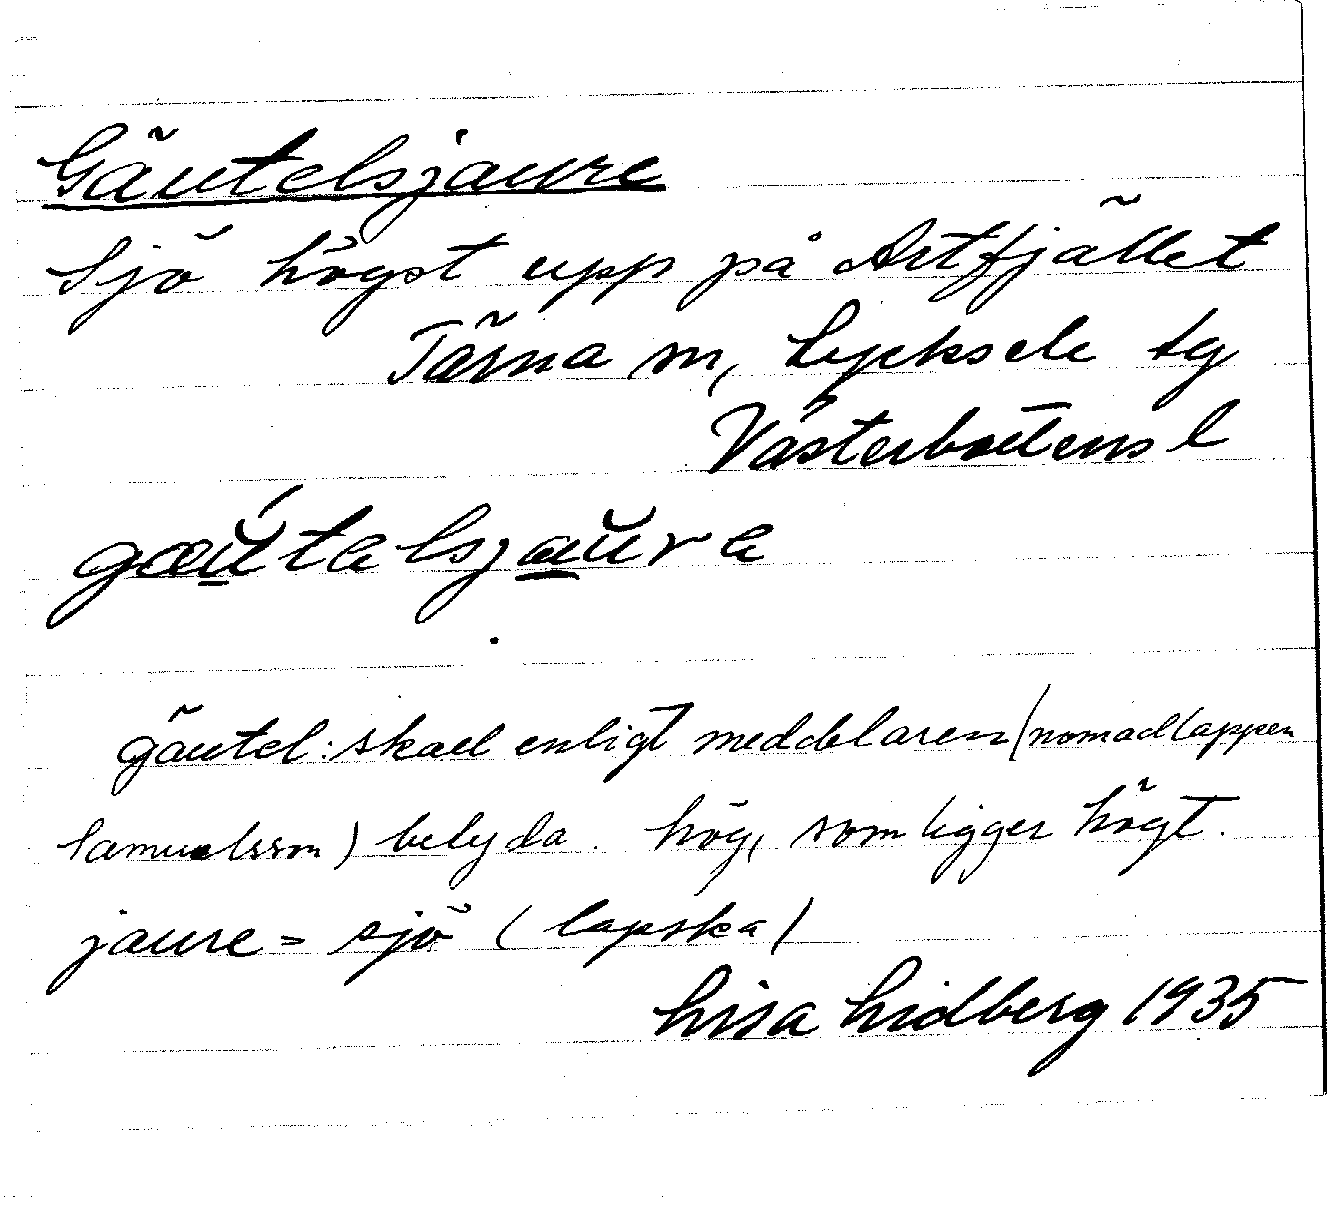 Gäutelsjaure
Sjö högst upp på Artfjället
Tärna sn, Lycksele tg
Västerbottens l
gæu̲telsjau̲re
gäutel: skall enligt meddelaren (nomadlappen
Samuelsson) betyda. hög, som ligger högt.
jaure = sjö (lapska)
Lisa Lidberg 1935